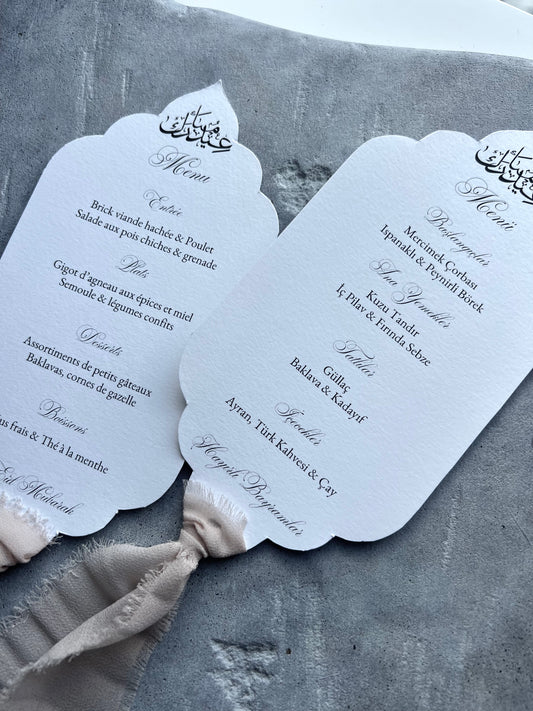 عيد مبارك
Menu
Entrée
Brick viande hachée & Poulet
Salade aux pois chiches & grenade
Plats
Gigot d'agneau aux épices et miel
Semoule & légumes confits
Desserts
Assortiments de petits gâteaux
Baklavas, cornes de gazelle
Boissons
frais & Thé à la menthe
Eid Mubarak
عيد مبارك
Menü
Başlangıçlar
Mercimek Çorbası
Ispanaklı & Peynirli Börek
Ana Yemekler
Kuzu Tandır
İç Pilav & Fırında Sebze
Tatlılar
Güllaç
Baklava & Kadayıf
İçecekler
Ayran, Türk Kahvesi & Çay
Hayırlı Bayramlar